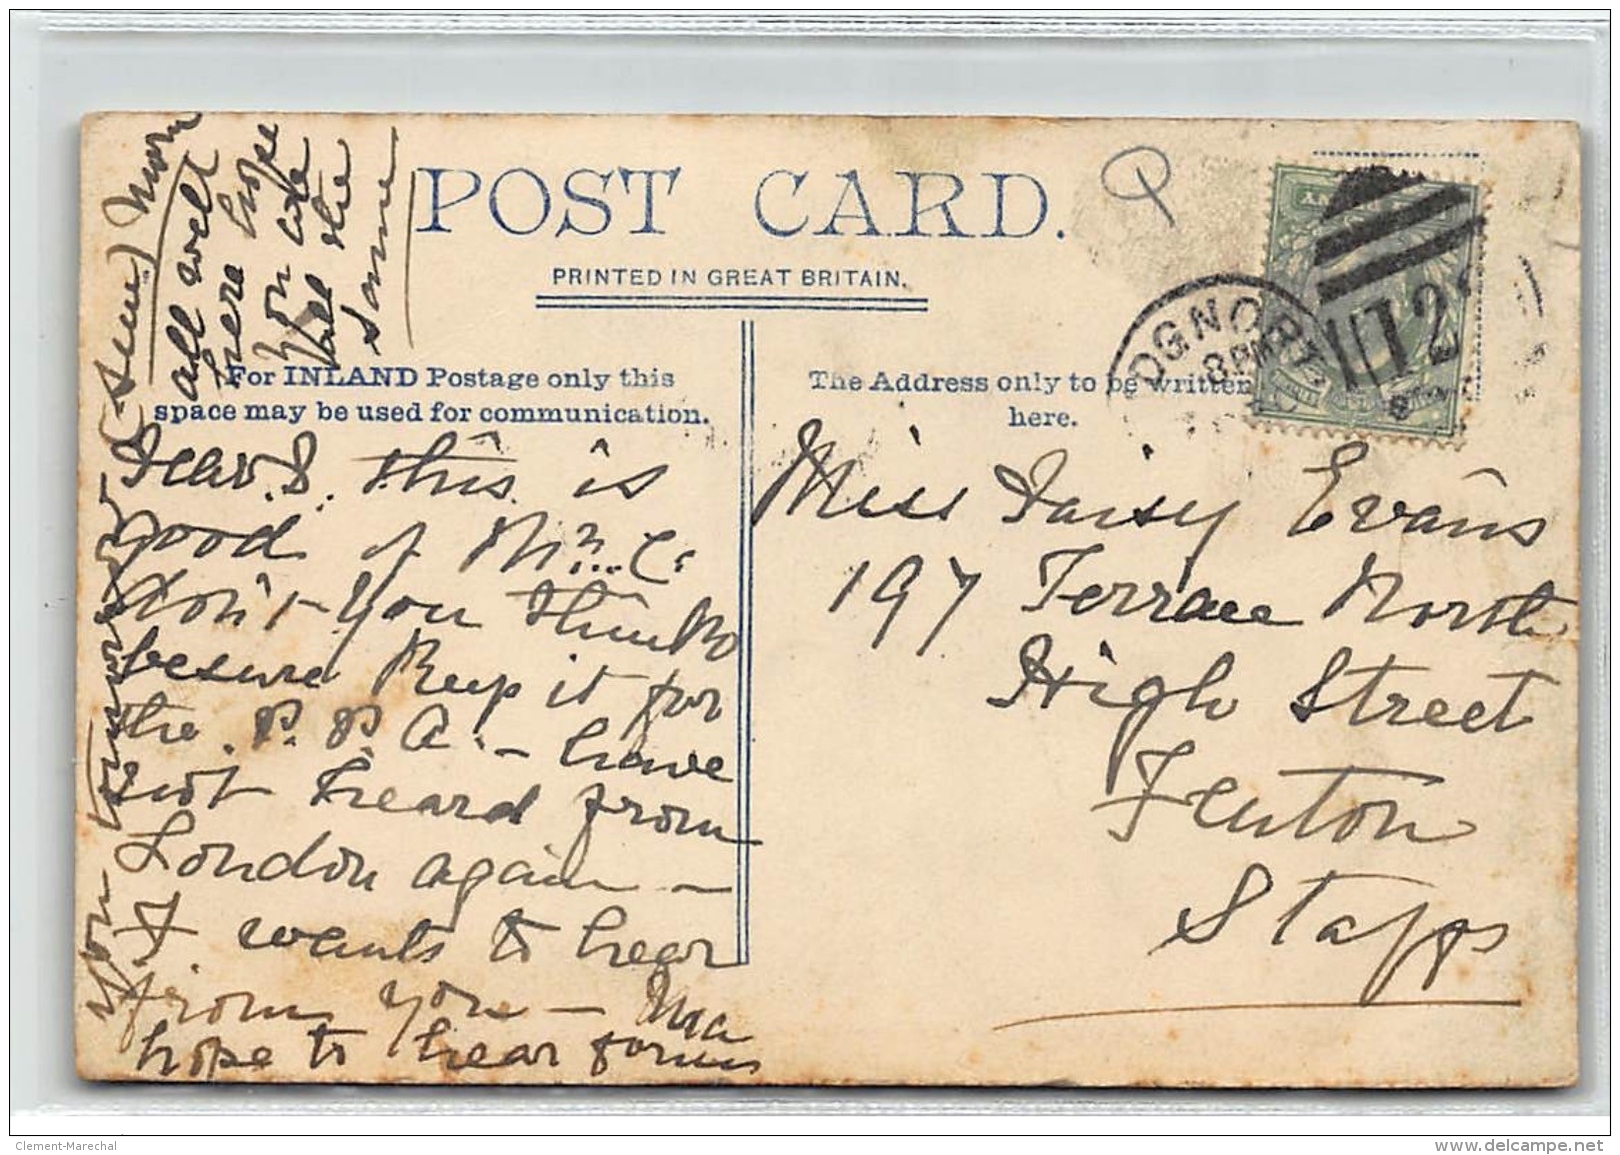 POST CARD.
PRINTED IN GREAT BRITAIN.
For INLAND Postage only this
space may be used for communication.
The Address only to be written
here.
OGNOR
8 PM
72
Dear D. this is
good of Mrs. C.
don't you think
be sure Keep it for
the P. P. A. - have
not heard from
London again -
F wants to hear
from you - Ma
hope to hear from
you tomorrow
all well
here hope
you are
all the
same
Miss Daisy Evans
197 Terrace North
High Street
Fenton
Staffs
Clement-Marechal
www.delcampe.net